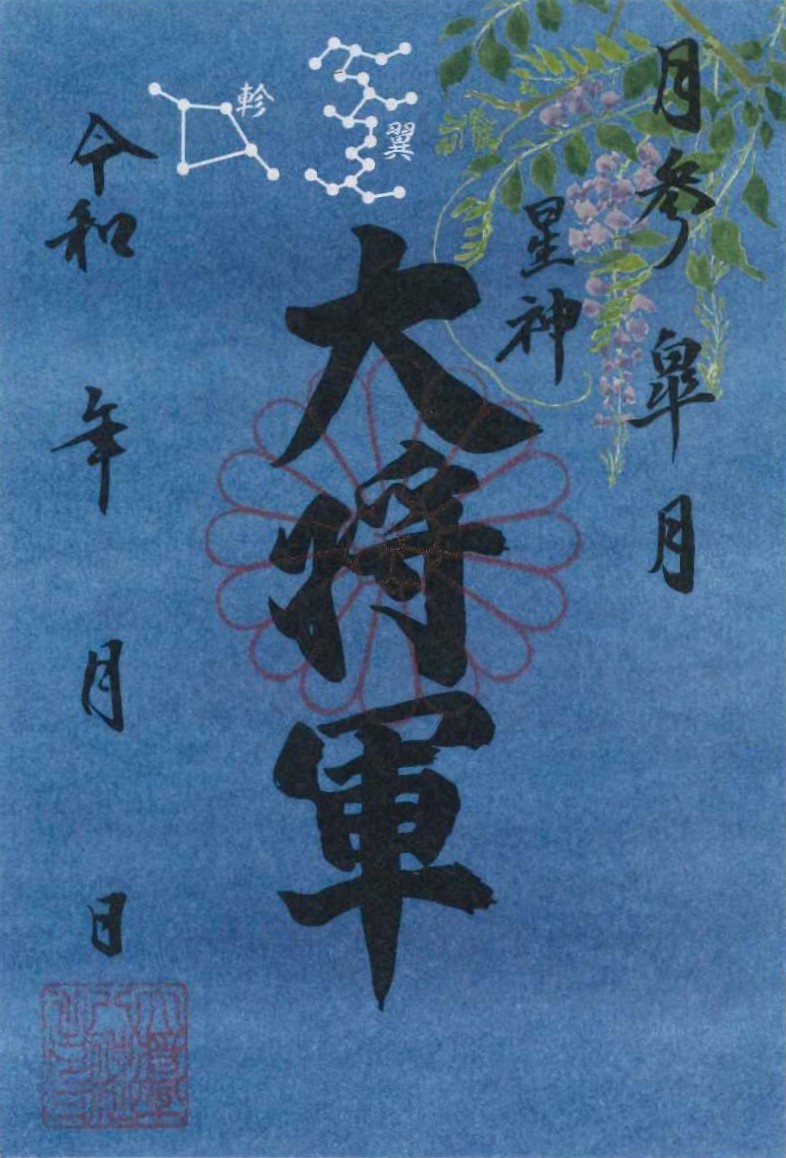 月参 皐月
星神
大将軍
翼
軫
令和 年 月 日